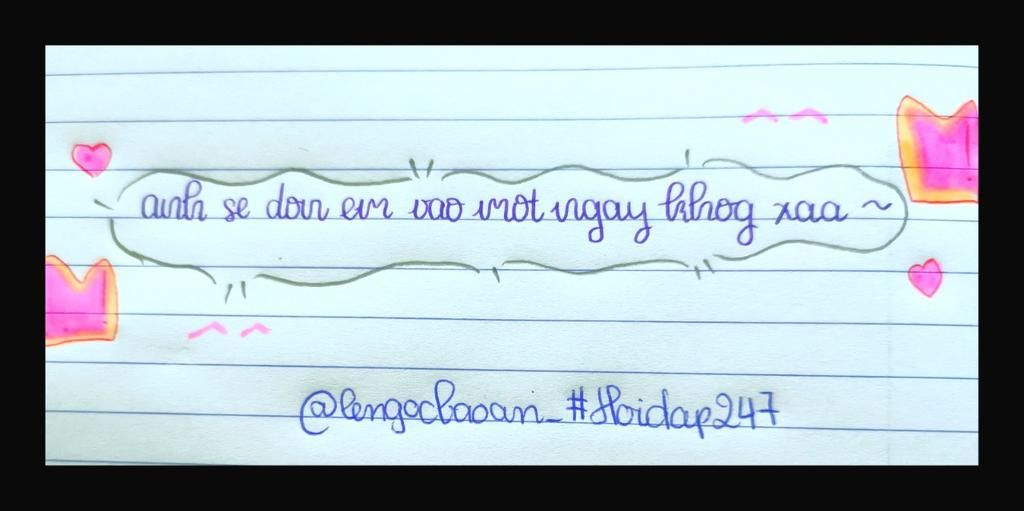 anh se don em vao mot ngay khog xaa ~
@lengocbaoan_#Hoidap247